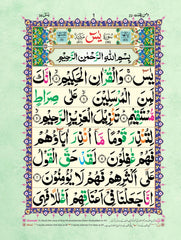 سُوْرَةُ يٰسٓ
بِسْمِ اللّٰهِ الرَّحْمٰنِ الرَّحِيْمِ
يٰسٓ ۚ وَالْقُرْاٰنِ الْحَكِيْمِ ۙ اِنَّكَ
لَمِنَ الْمُرْسَلِيْنَ ۙ عَلٰى صِرَاطٍ
مُّسْتَقِيْمٍ ؕ تَنْزِيْلَ الْعَزِيْزِ الرَّحِيْمِ ۙ
لِتُنْذِرَ قَوْمًا مَّاۤ اُنْذِرَ اٰبَآؤُهُمْ
فَهُمْ غٰفِلُوْنَ لَقَدْ حَقَّ الْقَوْلُ
عَلٰٓى اَكْثَرِهِمْ فَهُمْ لَا يُؤْمِنُوْنَ
اِنَّا جَعَلْنَا فِىْۤ اَعْنَاقِهِمْ اَغْلٰلًا فَهِىَ